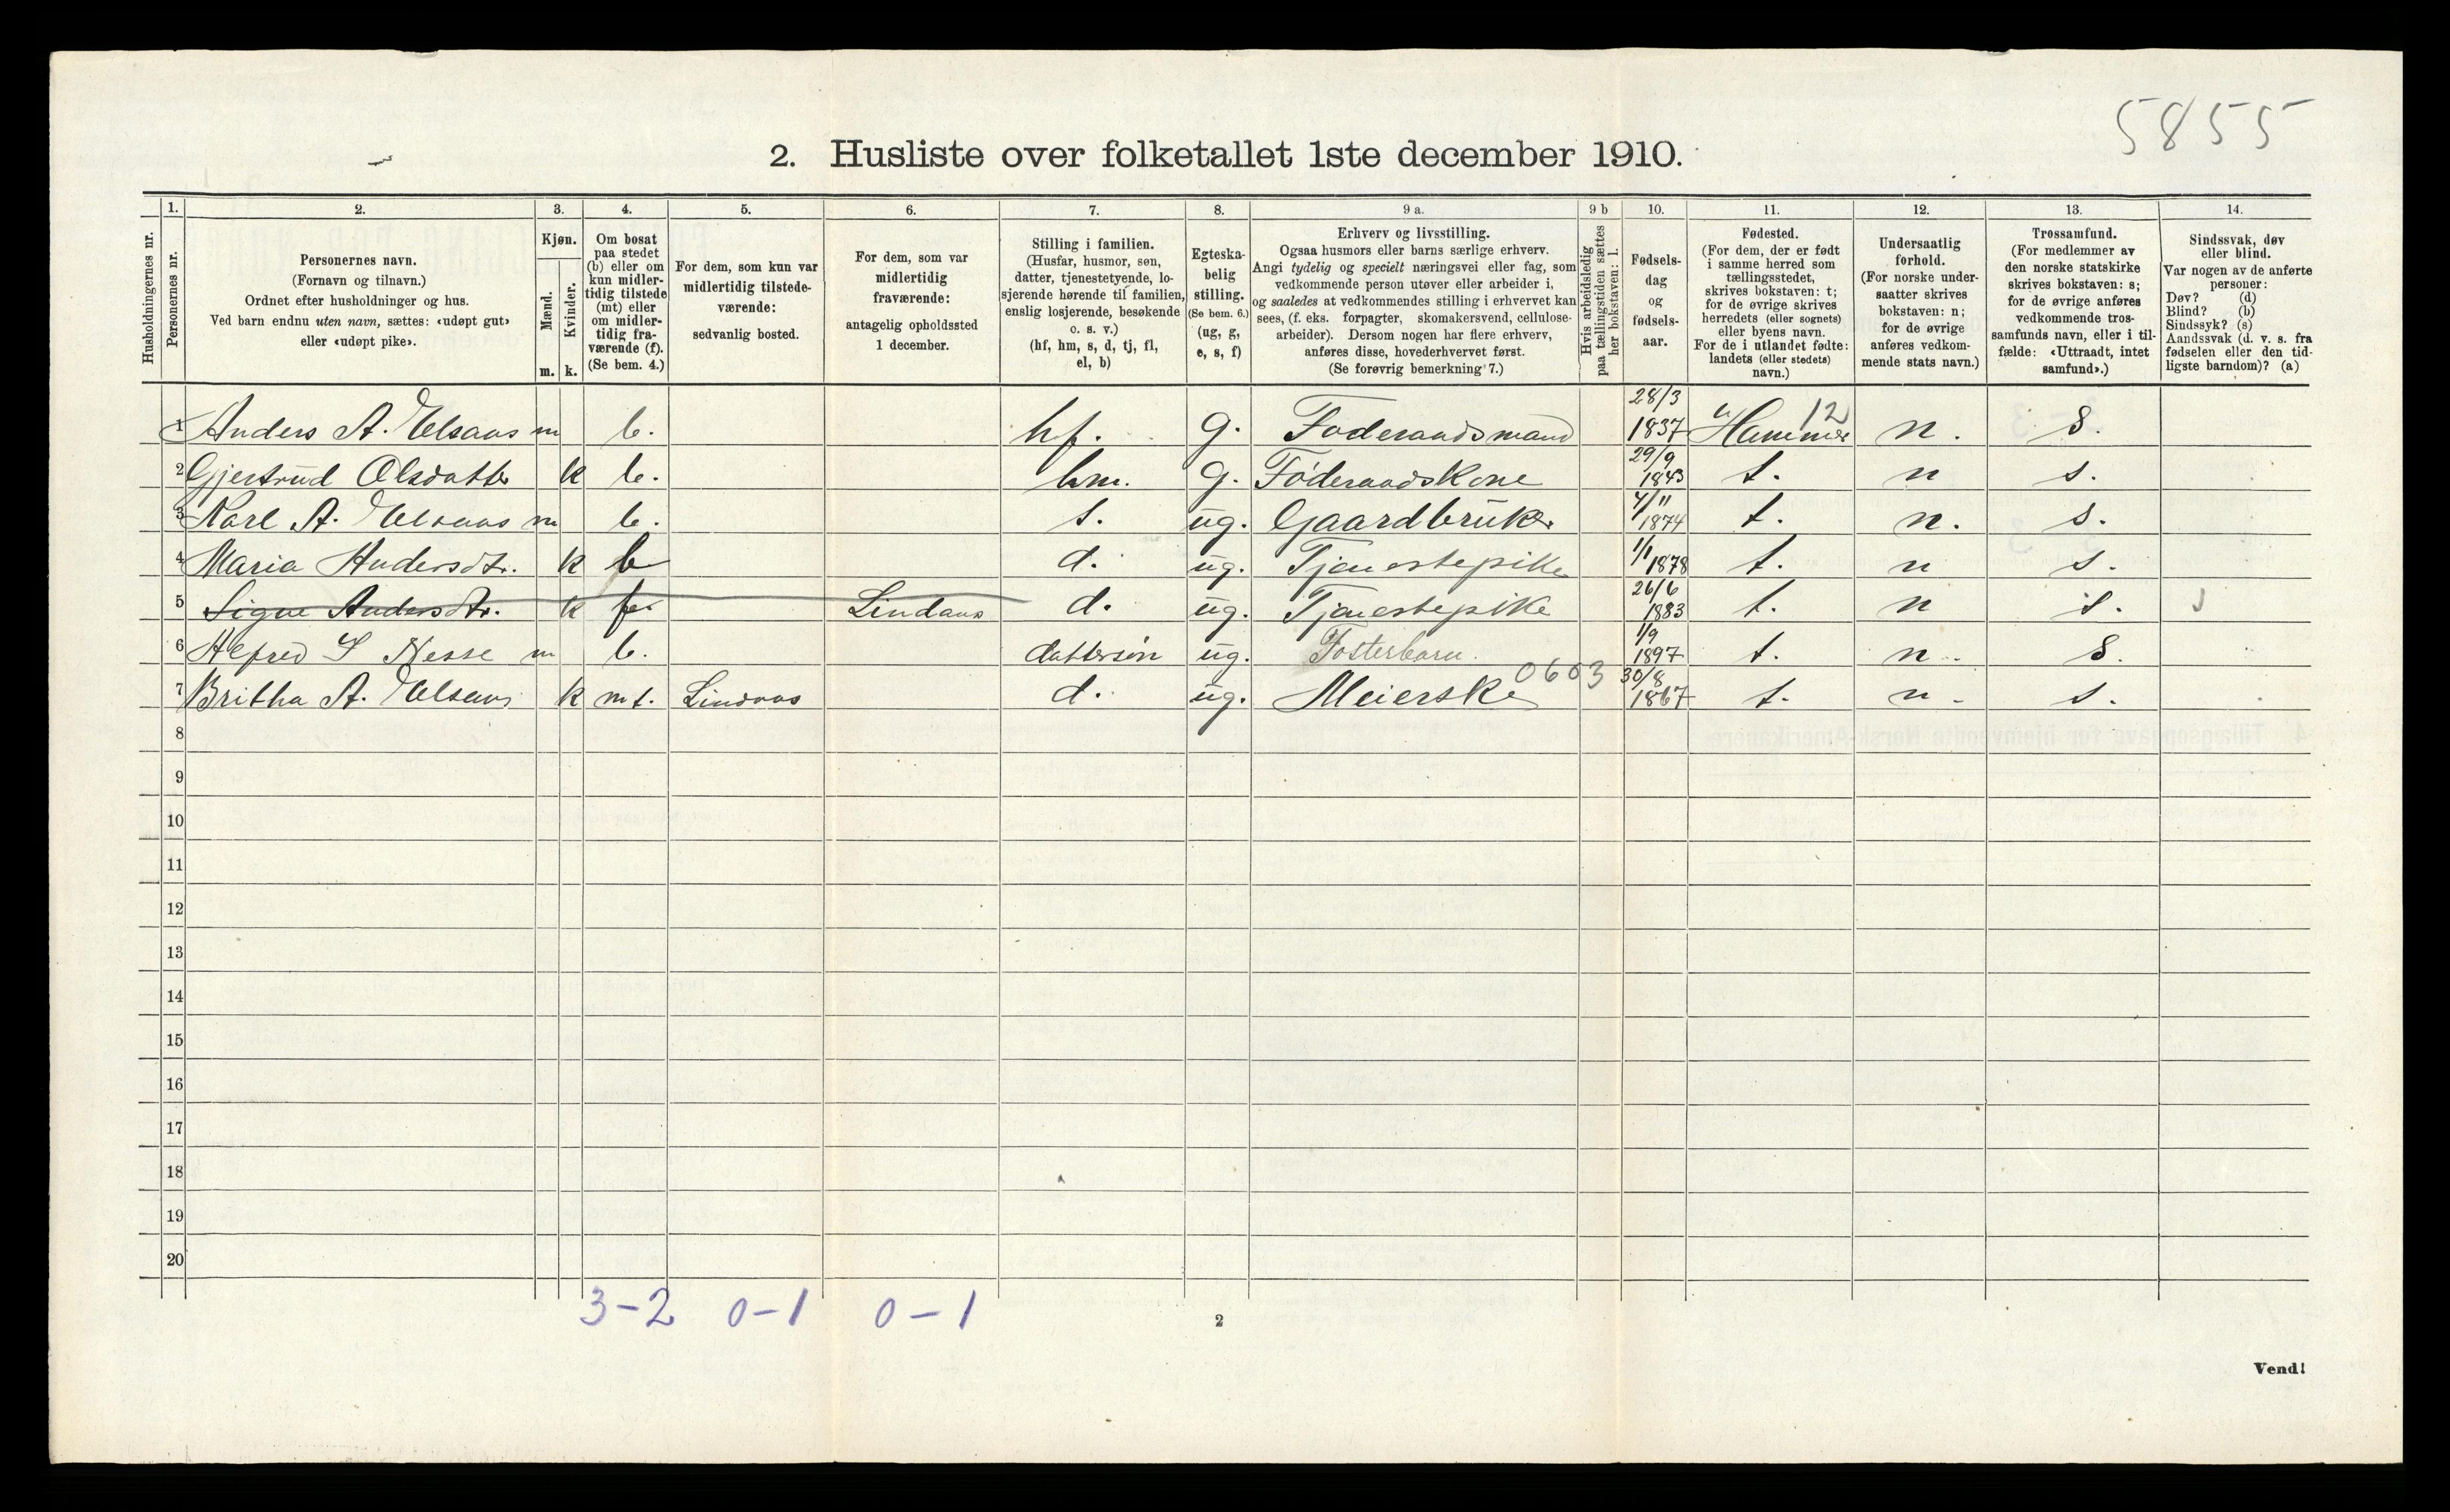 5855
2. Husliste over folketallet 1ste december 1910.
Husholdningernes nr.
1.
Personernes nr.
2.
Personernes navn.
(Fornavn og tilnavn.)
Ordnet efter husholdninger og hus.
Ved barn endnu uten navn, sættes: «udøpt gut»
eller «udøpt pike».
3.
Kjøn.
Mænd.
Kvinder.
m. k.
4.
Om bosat
paa stedet
(b) eller om
kun midler-
tidig tilstede
(mt) eller
om midler-
tidig fra-
værende (f).
(Se bem. 4.)
5.
For dem, som kun var
midlertidig tilstede-
værende:
sedvanlig bosted.
6.
For dem, som var
midlertidig
fraværende:
antagelig opholdssted
1 december.
7.
Stilling i familien.
(Husfar, husmor, søn,
datter, tjenestetyende, lo-
sjerende hørende til familien,
enslig losjerende, besøkende
o. s. v.)
(hf, hm, s, d, tj, fl,
el, b)
8.
Egteska-
belig
stilling.
(Se bem. 6.)
(ug, g,
e, s, f)
9 a.
Erhverv og livsstilling.
Ogsaa husmors eller barns særlige erhverv.
Angi tydelig og specielt næringsvei eller fag, som
vedkommende person utøver eller arbeider i,
og saaledes at vedkommendes stilling i erhvervet kan
sees, (f. eks. forpagter, skomakersvend, cellulose-
arbeider). Dersom nogen har flere erhverv,
anføres disse, hovederhvervet først.
(Se forøvrig bemerkning 7.)
9 b
Hvis arbeidsledig
paa tællingstiden sættes
her bokstaven: l.
10.
Fødsels-
dag
og
fødsels-
aar.
11.
Fødested.
(For dem, der er født
i samme herred som
tællingsstedet,
skrives bokstaven: t;
for de øvrige skrives
herredets (eller sognets)
eller byens navn.
For de i utlandet fødte:
landets (eller stedets)
navn.)
12.
Undersaatlig
forhold.
(For norske under-
saatter skrives
bokstaven: n;
for de øvrige
anføres vedkom-
mende stats navn.)
13.
Trossamfund.
(For medlemmer av
den norske statskirke
skrives bokstaven: s;
for de øvrige anføres
vedkommende tros-
samfunds navn, eller i til-
fælde: «Uttraadt, intet
samfund».)
14.
Sindssvak, døv
eller blind.
Var nogen av de anførte
personer:
Døv? (d)
Blind? (b)
Sindssyk? (s)
Aandssvak (d. v. s. fra
fødselen eller den tid-
ligste barndom)? (a)
1 Anders A. Elsaas m b. hf. g. Foderaadsmand 28/3 1837 Hammer 12 n. s.
2 Gjertrud Olsdatter k b. hm. g. Føderaadskone 29/9 1843 t. n s.
3 Karl A. Elsaas m b. s. ug. Gaardbruker 4/11 1874 t. n. s.
4 Maria Andersdtr. k b d. ug. Tjenestepike 1/1 1878 t. n s.
5 Signe Andersdtr. k f Lindaas d. ug. Tjenestepike 26/6 1883 t. n s.
6 Alfred S Nesse m b. dattersøn ug. Fosterbarn. 1/9 1897 t. n. s.
7 Britha A. Elsaas k mt. Lindaas d. ug. Meierske 0603 30/8 1867 t. n. s.
8
9
10
11
12
13
14
15
16
17
18
19
20
3-2 0-1 0-1
2
Vend!